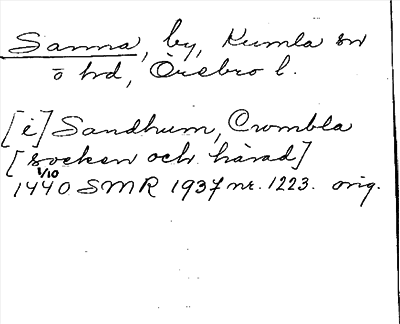 Sanna, by, Kumla sn
o hd, Örebro l.
[i] Sandhum, Crombla
[socken och härad]
1440 1/10 SMR 1937 nr. 1223. orig.